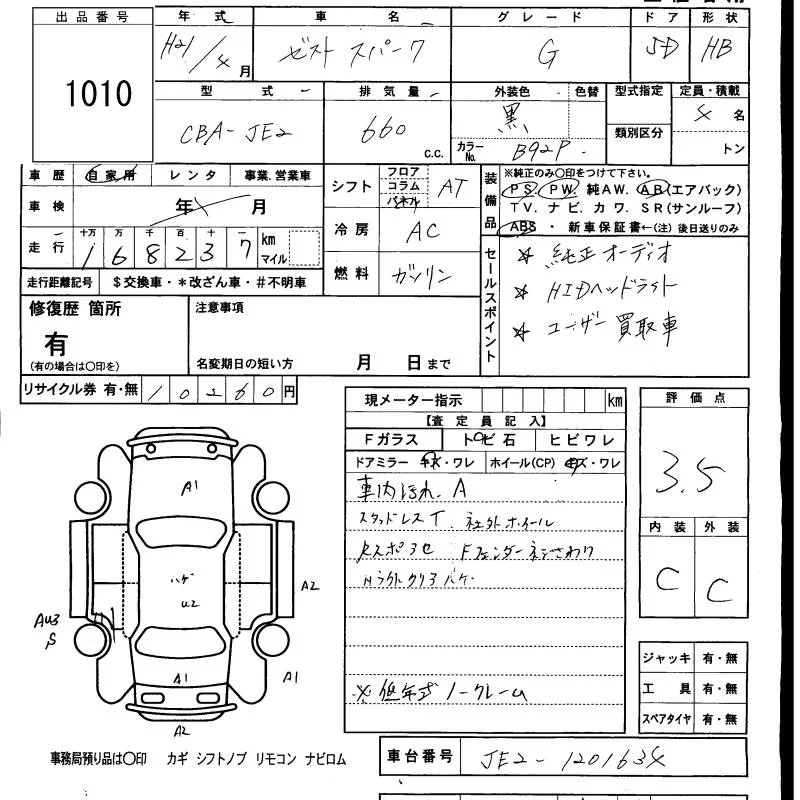 出品番号 年式 車名 グレード ドア 形状
1010 H21/4月 ゼスト スパーク G 5D HB
型式 排気量 外装色 色替 型式指定 定員・積載
CBA-JE2 660 c.c. 黒 カラーNo. B92P 類別区分 4名 トン
車歴 自家用 レンタ 事業.営業車
車検 年 月
走行 十万 万 千 百 十 一 km マイル
1 6 8 2 3 7
走行距離記号 $交換車・*改ざん車・#不明車
シフト フロア コラム パネル AT
冷房 AC
燃料 ガソリン
装備品 ※純正のみ〇印をつけて下さい。
PS. PW. 純AW. AB(エアバック)
TV. ナビ. カワ. SR(サンルーフ)
ABS ・ 新車保証書←(注)後日送りのみ
セールスポイント
☆ 純正オーディオ
☆ HIDヘッドライト
☆ ユーザー買取車
修復歴 箇所 注意事項
有
(有の場合は〇印を) 名変期日の短い方 月 日まで
リサイクル券 有・無 10260円
現メーター指示 km
【査定員記入】
Fガラス トビ石 ヒビワレ
ドアミラー キズ・ワレ ホイール(CP) キズ・ワレ
車内汚れ A
スタッドレスT. 社外ホイール
Fフェンダーネジさわり
※低年式ノークレーム
評価点
3.5
内装 外装
C C
A1
ハゲ
U2
A2
AU3
S
A1
A1
A2
ジャッキ 有・無
工具 有・無
スペアタイヤ 有・無
事務局預り品は〇印 カギ シフトノブ リモコン ナビロム
車台番号 JE2-1201634